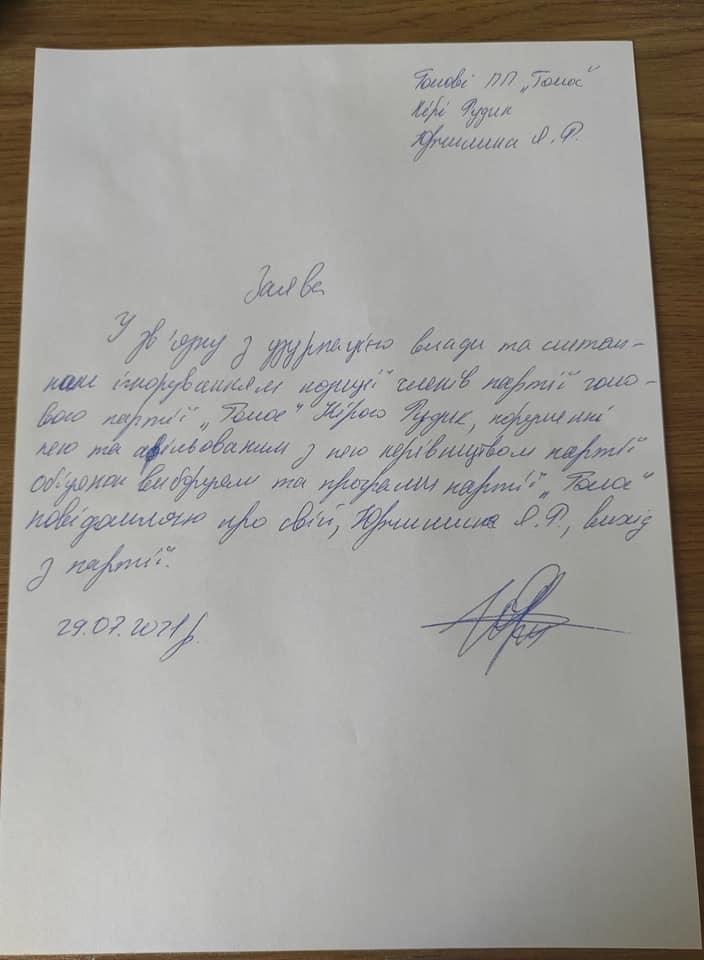 Голові ПП „Голос“
Кірі Рудик
Юрчишина Я. Р.
Заява
У зв'язку з узурпацією влади та систем-
ним ігноруванням позиції членів партії голо-
вою партії „Голос“ Кірою Рудик, порушенні
нею та афільованим з нею керівництвом партії
обіцянок виборцям та програми партії „Голос“
повідомляю про свій, Юрчишина Я. Р., вихід
з партії.
29.07.2021р.